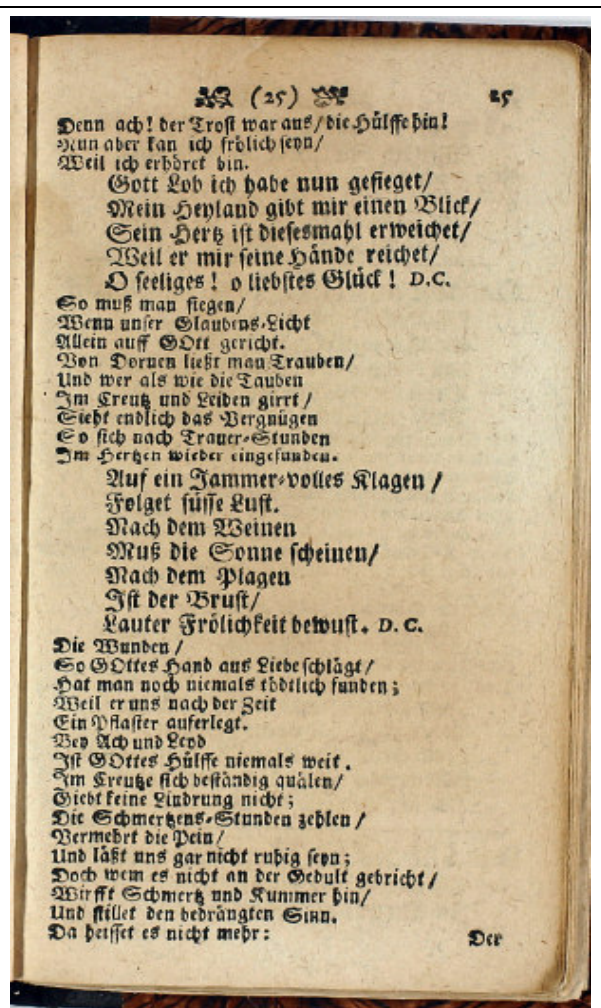 (25) 25
Denn ach! der Trost war aus/ die Hülffe hin!
Nun aber kan ich frölich seyn/
Weil ich erhöret bin.
Gott Lob ich habe nun gesieget/
Mein Heyland gibt mir einen Blick/
Sein Hertz ist diesesmahl erweichet/
Weil er mir seine Hände reichet/
O seeliges! o liebstes Glück! D.C.
So muß man siegen/
Wenn unser Glaubens-Licht
Allein auff GOtt gericht.
Von Dornen ließt man Trauben/
Und wer als wie die Tauben
Im Creutz und Leiden girrt/
Sieht endlich das Vergnügen
So sich nach Trauer-Stunden
Im Hertzen wieder eingefunden.
Auf ein Jammer-volles Klagen /
Folget süsse Lust.
Nach dem Weinen
Muß die Sonne scheinen/
Nach dem Plagen
Ist der Brust/
Lauter Frölichkeit bewust. D. C.
Die Wunden /
So GOttes Hand aus Liebe schlägt/
Hat man noch niemals tödtlich funden;
Weil er uns nach der Zeit
Ein Pflaster auferlegt.
Bey Ach und Leyd
Ist GOttes Hülffe niemals weit.
Im Creutze sich beständig quälen/
Giebt keine Lindrung nicht;
Die Schmertzens-Stunden zehlen /
Vermehrt die Pein/
Und läßt uns gar nicht ruhig seyn;
Doch wem es nicht an der Gedult gebricht/
Wirfft Schmertz und Kummer hin/
Und stillet den bedrängten Sinn.
Da heisset es nicht mehr:
Der